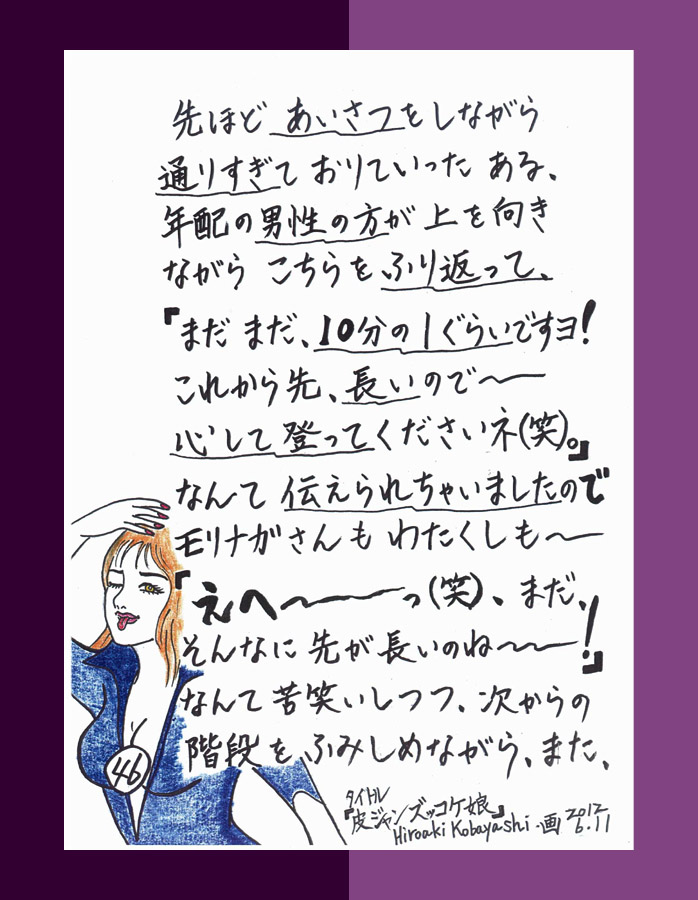 先ほど あいさつをしながら
通りすぎて おりていった ある、
年配の男性の方が 上を向き
ながら こちらを ふり返って、
『まだ まだ、10分の1ぐらいですヨ!
これから先、長いので〜
心して登ってくださいネ(笑)。』
なんて 伝えられちゃいましたので
モリナガさんも わたくしも〜
『えへ〜っ(笑)、まだ、
そんなに 先が長いのね〜〜!』
なんて 苦笑いしつつ、次からの
階段を、ふみしめながら、また、
46
タイトル
『皮ジャンズッコケ娘』
Hiroaki Kobayashi・画 2012 6.11